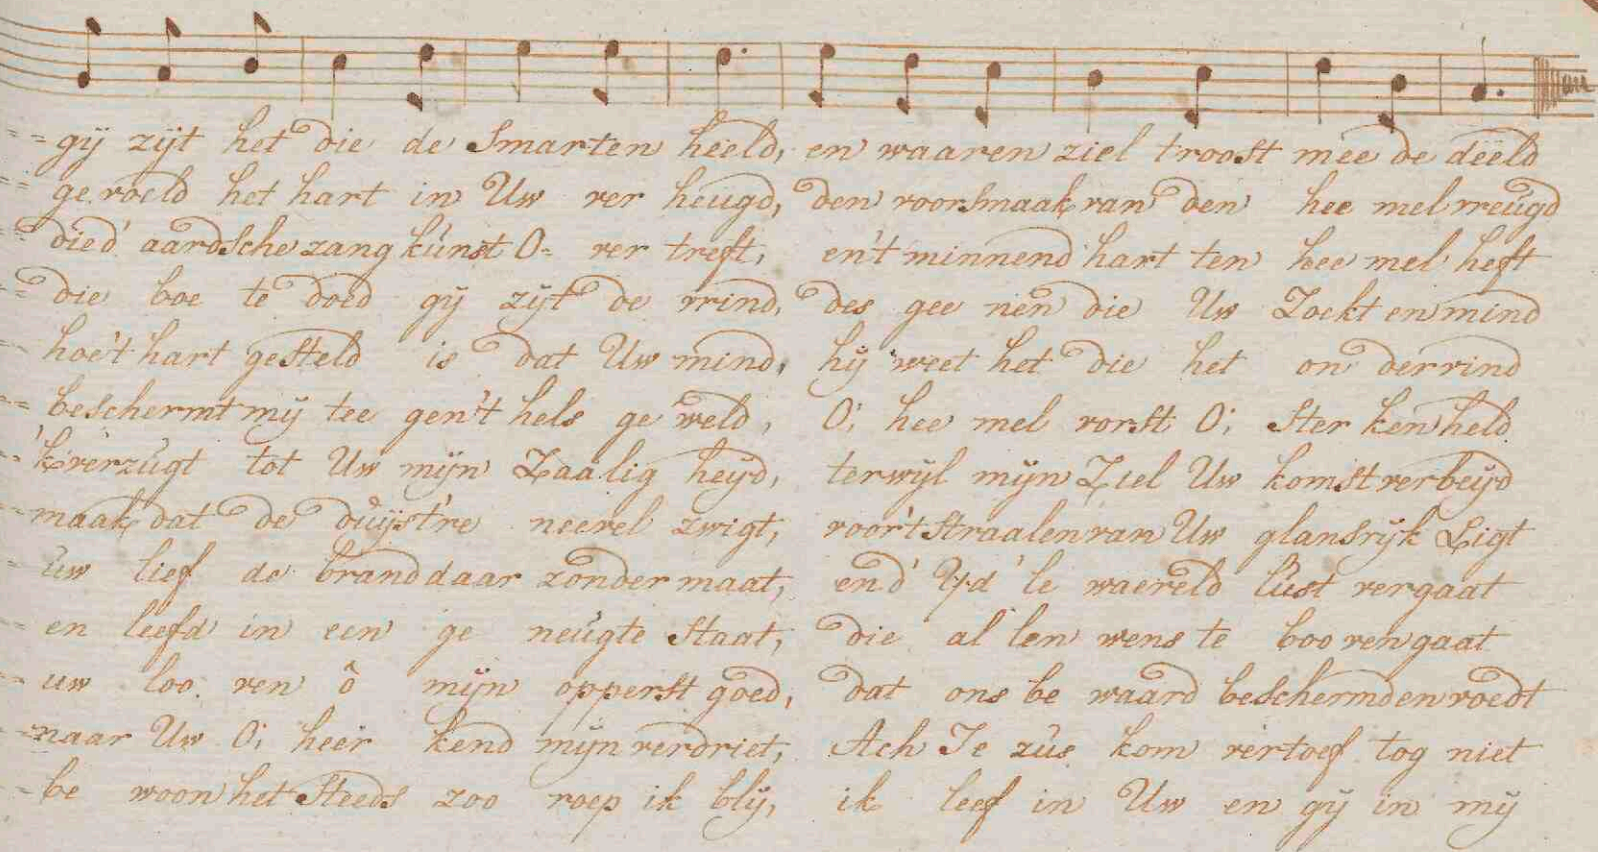 gÿ zÿt het die de Smarten heeld, en waaren ziel troost mee de deeld
ge voeld het hart in Uw ver heugd, den voorsmaak van den hee mel vreugd
die d' aardsche zang kunst O= ver treft, en 't minnend hart ten hee mel heft
die boe te doed gÿ zÿt de vrind, des gee nen die Uw Zoekt en mind
hoe 't hart gesteld is dat Uw mind, hÿ weet het die het on dervind
beschermt mÿ tee gen 't hels ge weld, O; hee mel vorst O; ster ken held
'k verzugt tot Uw mÿn Zaa lig heÿd, terwÿl mÿn Ziel Uw komst verbeÿd
maak dat de duÿst're neevel zwigt, voor 't straalen van Uw glansrÿk Ligt
uw lief de brand daar zonder maat, en d' Ÿd 'le waereld lust vergaat
en leefd in een ge neugte staat, die al len wens te boo ven gaat
uw loo ven ô mÿn opperst goed, dat ons be waard beschermd en voedt
naar Uw O; heer kend mÿn verdriet, Ach Je zus kom vertoef tog niet
be woon het steeds zoo roep ik blÿ, ik leef in Uw en gÿ in mÿ